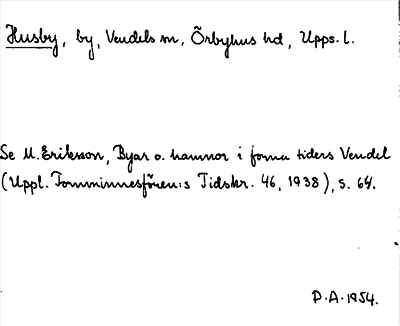 Husby, by, Vendels sn, Örbyhus hd, Upps. l.
Se M. Erikson, Byar o. hamnor i forna tiders Vendel
(Uppl. Fornminnesfören:s Tidskr. 46, 1938), s. 64.
P.A. 1954.